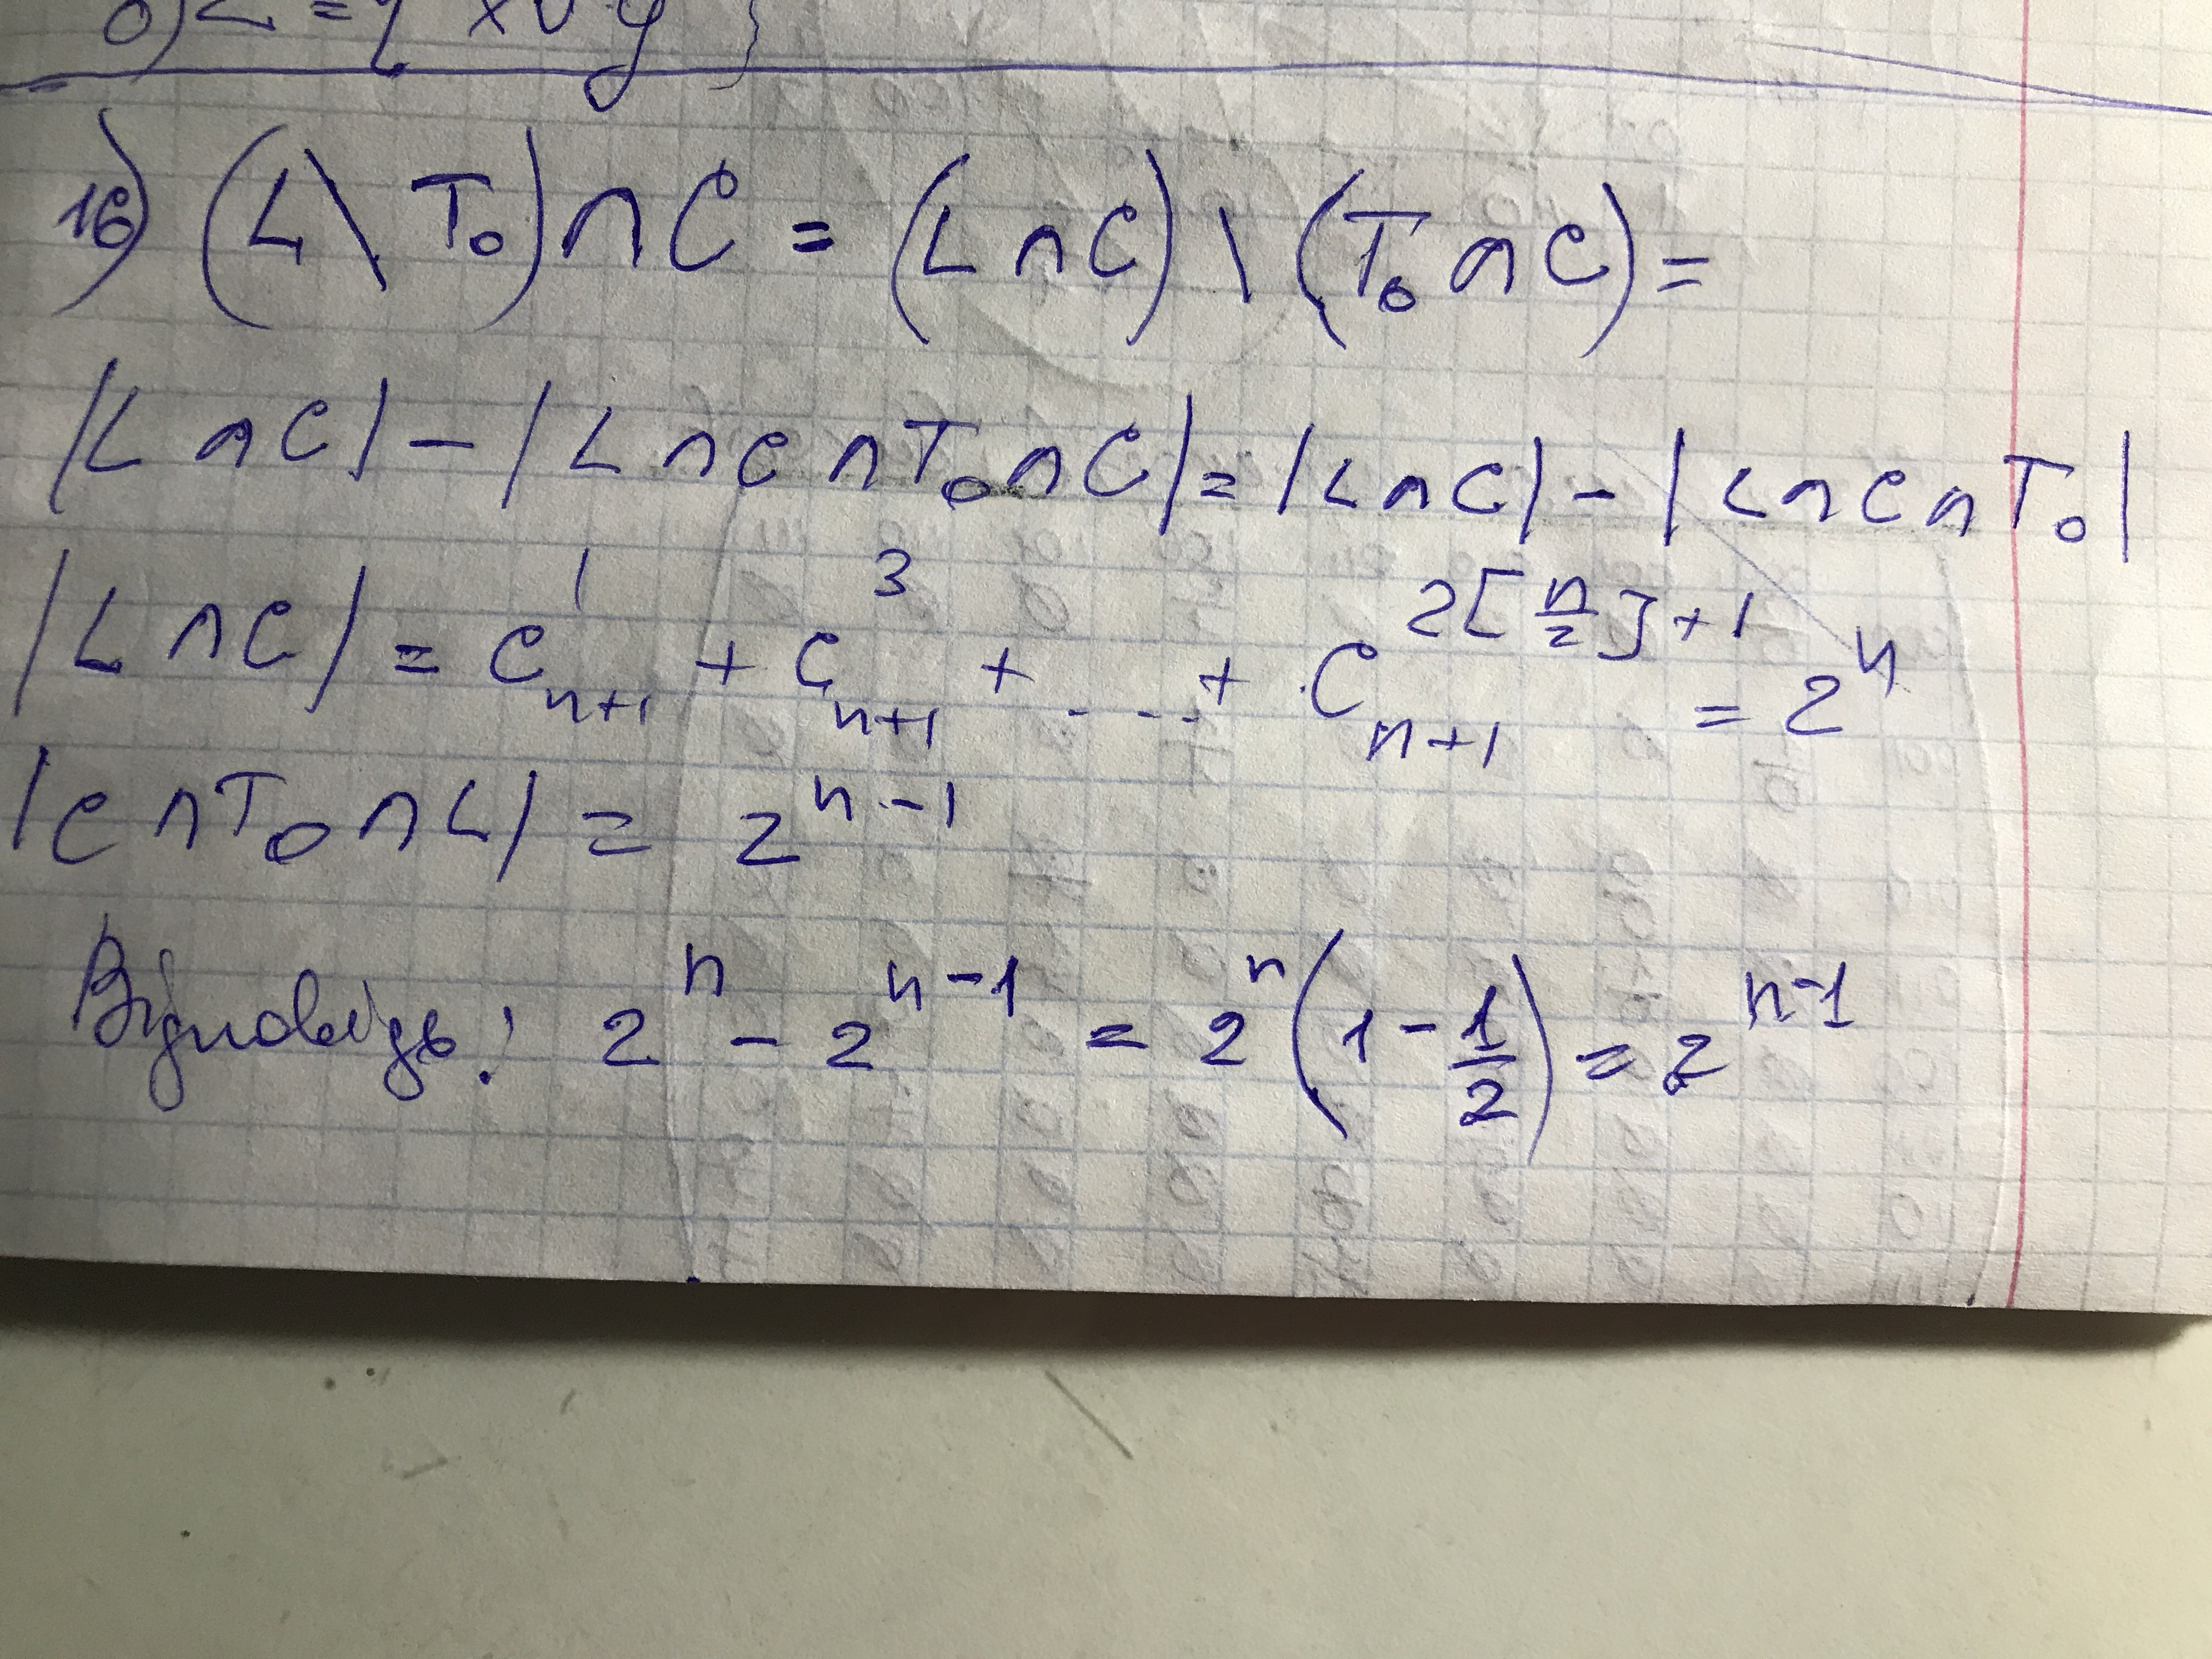 σ) L = 1 x ∪ y
1б) (L \ T₀) ∩ C = (L ∩ C) \ (T₀ ∩ C) =
|L ∩ C| - |L ∩ C ∩ T₀ ∩ C| = |L ∩ C| - |L ∩ C ∩ T₀|
|L ∩ C| = C¹ₙ₊₁ + C³ₙ₊₁ + ... + C^{2[n/2]+1}ₙ₊₁ = 2ⁿ
|C ∩ T₀ ∩ L| = 2ⁿ⁻¹
: 2ⁿ - 2ⁿ⁻¹ = 2ⁿ(1 - 1/2) = 2ⁿ⁻¹